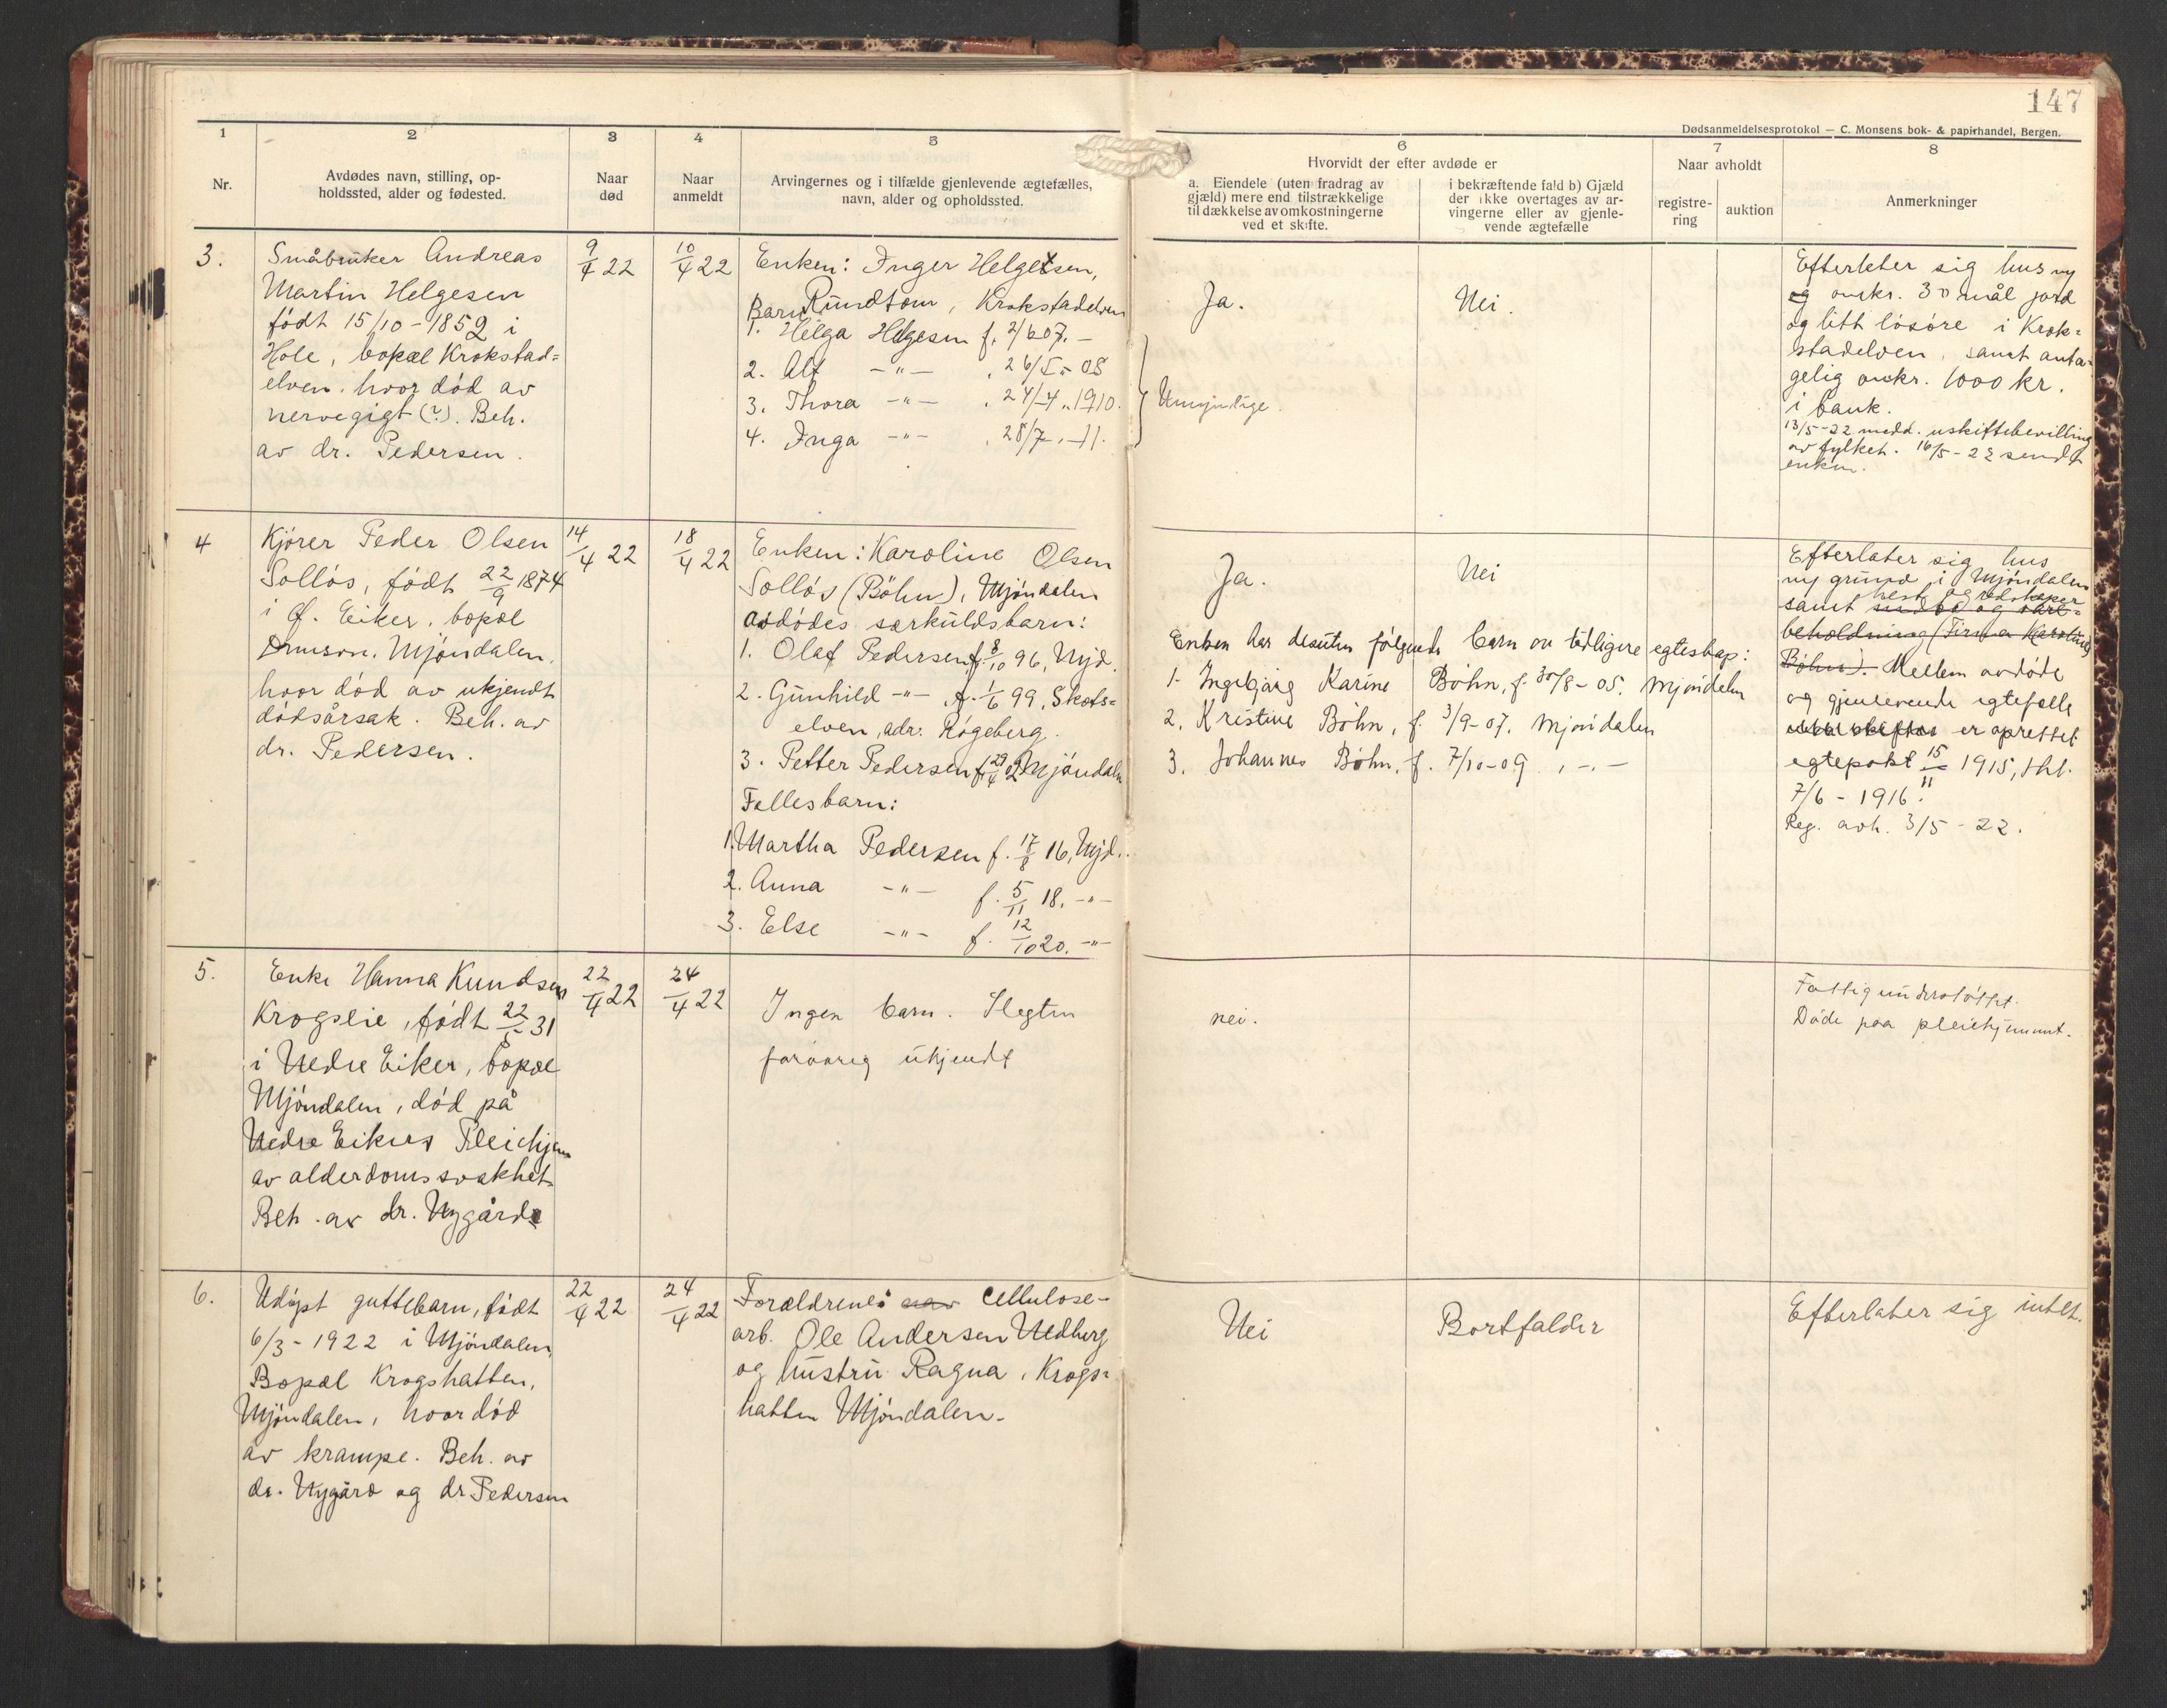 147
Dødsanmeldelsesprotokol — C. Monsens bok- & papirhandel, Bergen.
1
2
3
4
5
6
7
8
Nr.
Avdødes navn, stilling, op-
holdssted, alder og fødested.
Naar
død
Naar
anmeldt
Arvingernes og i tilfælde gjenlevende ægtefælles,
navn, alder og opholdssted.
Hvorvidt der efter avdøde er
a. Eiendele (uten fradrag av
gjæld) mere end tilstrækkelige
til dækkelse av omkostningerne
ved et skifte.
i bekræftende fald b) Gjæld
der ikke overtages av ar-
vingerne eller av gjenle-
vende ægtefælle
Naar avholdt
registre-
ring
auktion
Anmerkninger
3.
Småbruker Andreas
Martin Helgesen
født 15/10-1852 i
Hole, bopæl Krokstad=
elven. hvor død av
nervegigt (?). Beh.
av dr. Pedersen.
9/4 22
10/4 22
Enken: Inger Helgesen,
Rundtom, Krokstadelven
Barn
1. Helga Helgesen f. 2/6 07. -
2. Alf -"- . 26/5 - 08
3. Thora -"- . 24/4 . 1910.
4. Inga -"- . 28/7 . -11.
Umyndige.
Ja.
Nei.
Efterlater sig hus ny
og omkr. 30 mål jord
og litt løsøre i Krok=
stadelven, samt anta=
gelig omkr. 1000 kr.
i bank.
13/5-22 medd. uskiftebevilling
av fylket. 16/5-22 sendt
enken.
4
Kjører Peder Olsen
Solløs, født 22/9 1874
i Ø. Eiker, bopæl
Mjøndalen.
hvor død av ukjendt
dødsårsak. Beh. av
dr. Pedersen.
14/4 22
18/4 22
Enken: Karoline Olsen
Solløs (Bøhn), Mjøndalen
avdødes særkuldsbarn:
1. Olaf Pedersen, f. 8/10 96, Mjd.
2. Gunhild -"- f. 1/6 99, Skots=
elven, adr. Røgeberg.
3. Petter Pedersen f. 29/4 02 Mjøndalen
Fellesbarn:
1. Martha Pedersen f. 17/8 16, Mjd.
2. Anna -"- f. 5/11 18. -"-
3. Else -"- f. 12/10 20. -"-
Ja.
Nei
Enken har desuten følgende barn av tidligere egteskap:
1. Ingebjørg Karine Bøhn, f. 30/8-05. Mjøndalen
2. Kristine Bøhn, f. 3/9-07. Mjøndalen
3. Johannes Bøhn, f. 7/10-09 . -.-
Efterlater sig hus
ny grund i Mjøndalen
hest og redskaper
samt og vare=
beholdning (Firma Karoline
Bøhn). Mellem avdøde
og gjenlevende egtefælle
er oprettet
egtepakt 15/11 1915, thl.
7/6 - 1916.
Reg. avh. 3/5 - 22.
5.
Enke Hanna Knudsen
Krogslie, født 22/5 31
i Nedre Eiker, bopæl
Mjøndalen, død på
Nedre Eikers Pleiehjem
av alderdomssvakhet.
Beh. av dr. Nygård
22/4 22
24/4 22
Ingen barn. Slegten
forøvrig ukjendt
nei.
Fattigunderstøttet.
Døde paa pleiehjemmet.
6.
Udøpt guttebarn, født
6/3 - 1922 i Mjøndalen,
Bopæl Krogshatten,
Mjøndalen, hvor død
av krampe. Beh. av
dr. Nygård og dr Pedersen
22/4 22
24/4 22
Forældrene: cellulose-
arb. Ole Andersen Nedberg
og hustru Ragna, Krogs=
hatten Mjøndalen.
Nei
Bortfalder
Efterlater sig intet.